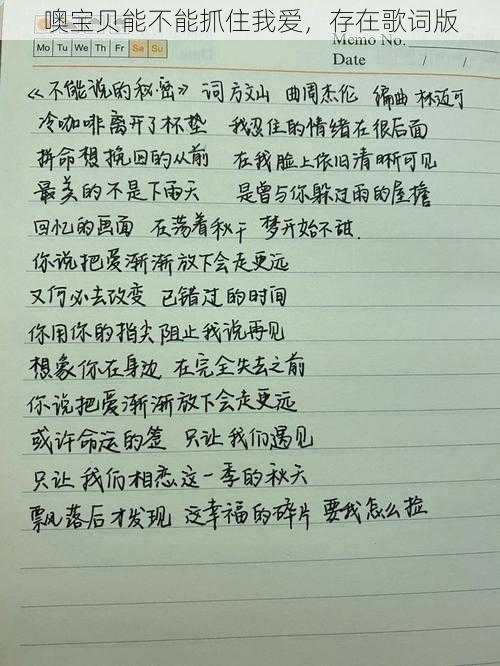 噢宝贝能不能抓住我爱，存在歌词版
Mo Tu We Th Fr Sa Su
Memo No.
Date / /
《不能说的秘密》 词方文山 曲周杰伦 编曲林迈可
冷咖啡离开了杯垫 我忍住的情绪在很后面
拼命想挽回的从前 在我脸上依旧清晰可见
最美的不是下雨天 是曾与你躲过雨的屋檐
回忆的画面 在荡着秋千 梦开始不甜.
你说把爱渐渐放下会走更远
又何必去改变 已错过的时间
你用你的指尖 阻止我说再见
想象你在身边 在完全失去之前
你说把爱渐渐放下会走更远
或许命运的签 只让我们遇见
只让我们相恋这一季的秋天
飘落后才发现 这幸福的碎片 要我怎么捡